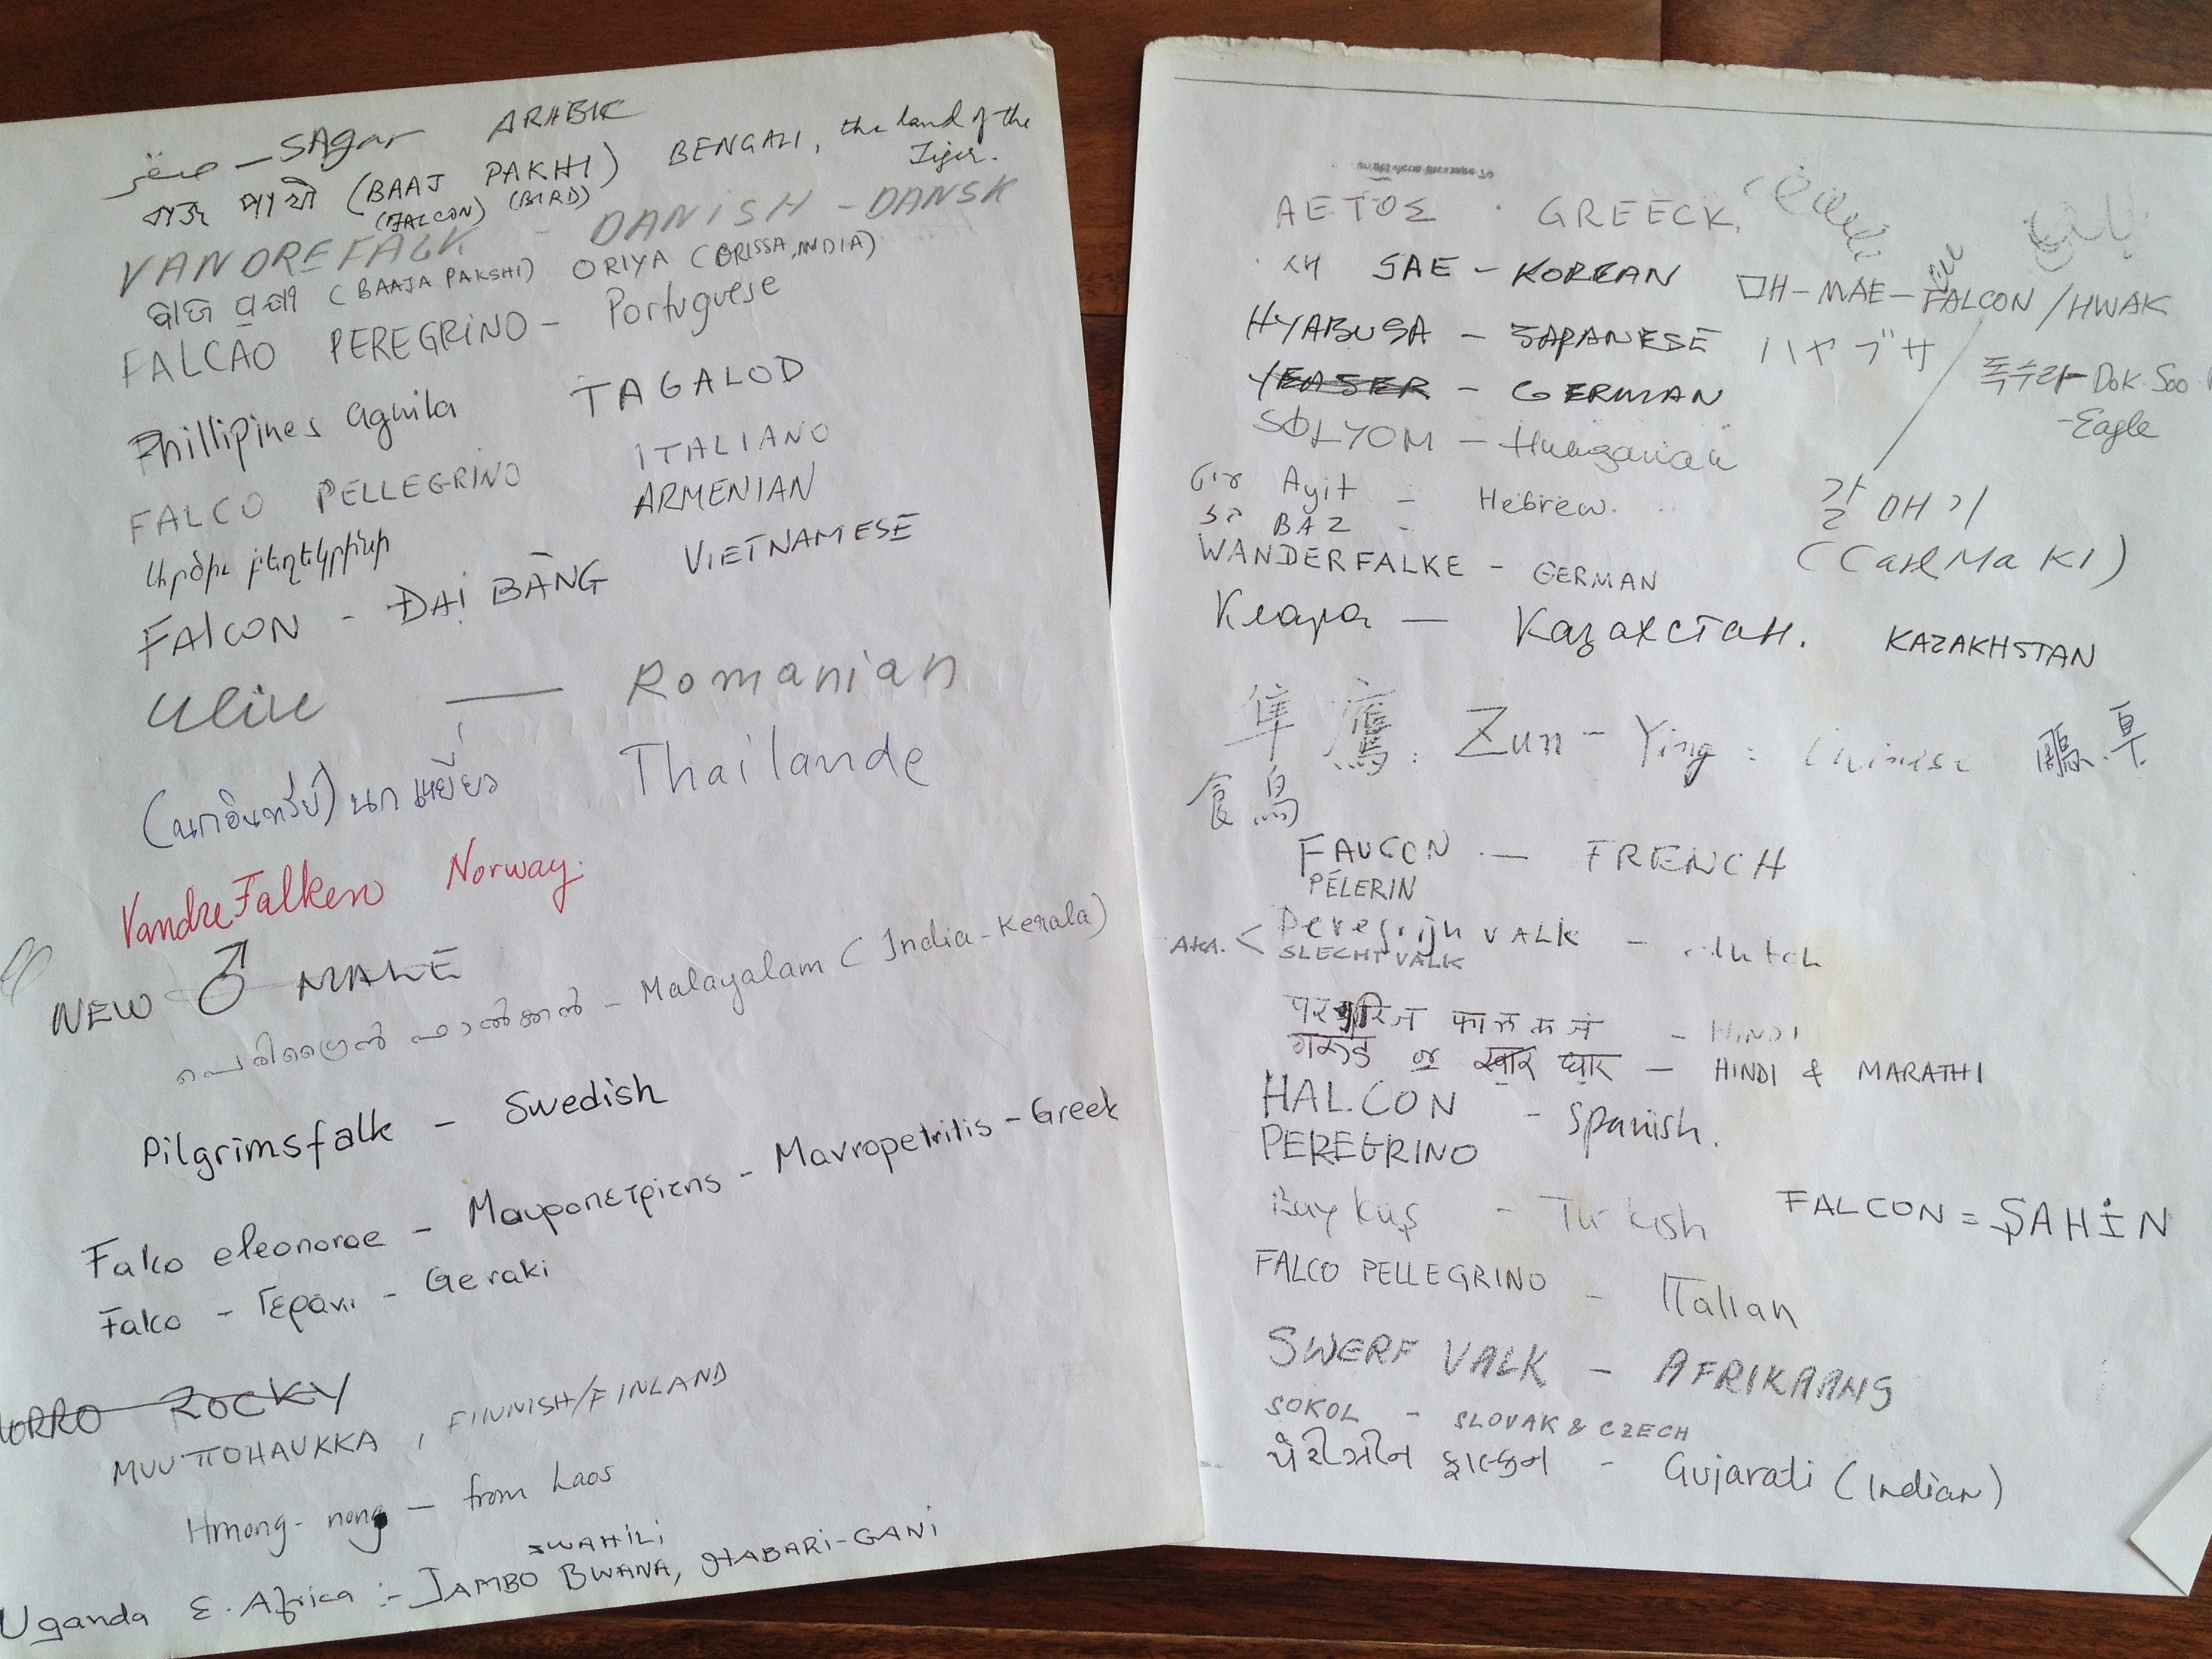 صقر – SAgar ARABIC
বাজ পাখী (BAAJ PAKHI) BENGALI, the land of the Tiger.
(FALCON) (BIRD)
VANDREFALK - DANISH - DANSK
ବାଜ ପକ୍ଷୀ (BAAJA PAKSHI) ORIYA (ORISSA, INDIA)
FALCÃO PEREGRINO - Portuguese
Phillipines aguila TAGALOD
FALCO PELLEGRINO ITALIANO
ARMENIAN
FALCON - ĐẠI BÀNG VIETNAMESE
Uliu — Romanian
(นกอินทรีย์) นกเหยี่ยว Thailande
VandreFalken Norway.
NEW ♂ MALE
പെരിഗ്രൈൻ ഫാൽക്കൻ - Malayalam (India - Kerala)
Pilgrimsfalk - Swedish
Falco eleonorae - Μαυροπετρίτης - Mavropetritis - Greek
Falco - Γεράκι - Geraki
ROCKY
MUUTTOHAUKKA, FINNISH/FINLAND
Hmong - nong - from Laos
SWAHILI
Uganda E. Africa :- JAMBO BWANA, HABARI-GANI
ΑΕΤΟΣ · GREECK.
새 SAE - KOREAN 매 - MAE - FALCON / HWAK
HYABUSA - JAPANESE ハヤブサ
독수라 - DOK. Soo
-Eagle
YEASER - GERMAN
SÓLYOM - Hungarian
עיט Ayit - Hebrew.
בז BAZ -
갈매기
(CarlMa KI)
WANDERFALKE - GERMAN
Казахстан. KAZAKHSTAN
隼 鷹 : Zun - Ying : Chinese
FAUCON - FRENCH
PÉLERIN
AKA. < Peregrijn VALK - dutch
SLECHT VALK
HINDI
गरूड or घार - HINDI & MARATHI
HALCON - Spanish.
PEREGRINO
Baykuş - Turkish FALCON = ŞAHİN
FALCO PELLEGRINO - ITalian
SWERF VALK - AFRIKAANS
SOKOL - SLOVAK & CZECH
પેરીગ્રીન ફાલ્કન - Gujarati (Indian)